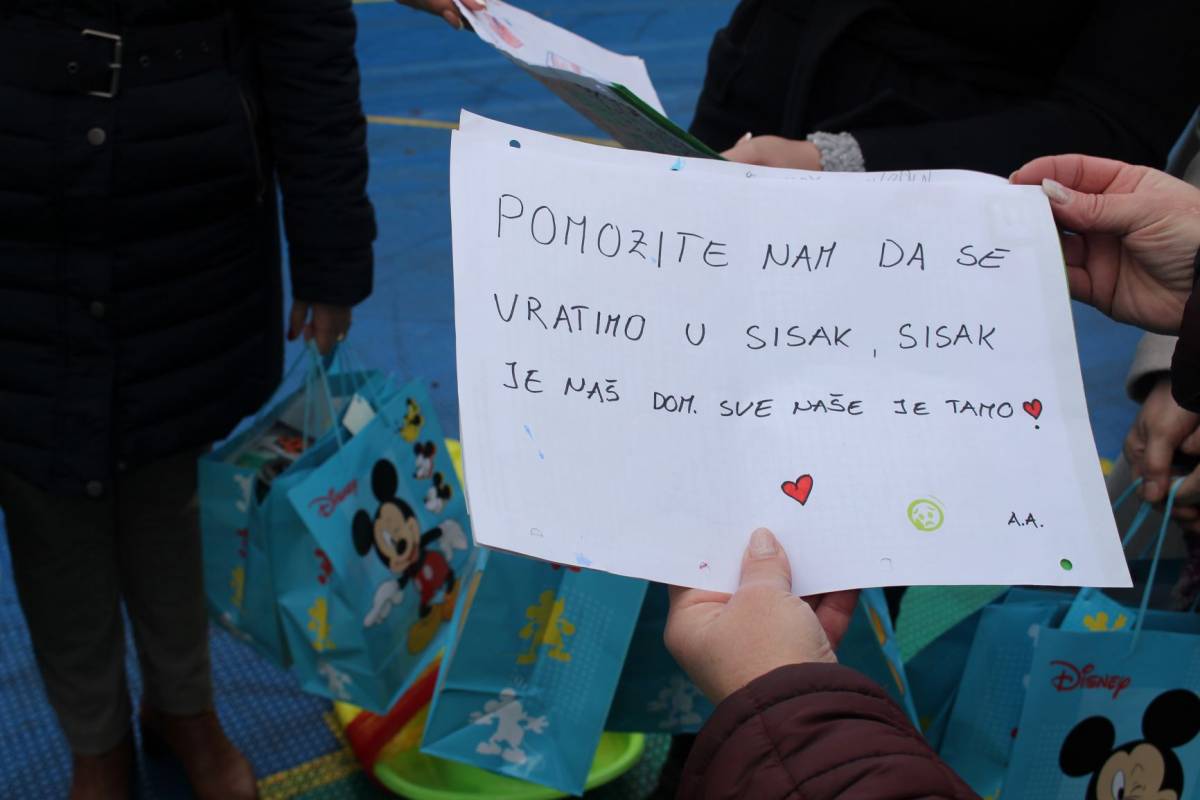 POMOZITE NAM DA SE
VRATIMO U SISAK, SISAK
JE NAŠ DOM. SVE NAŠE JE TAMO
A.A.
Disney
Disney